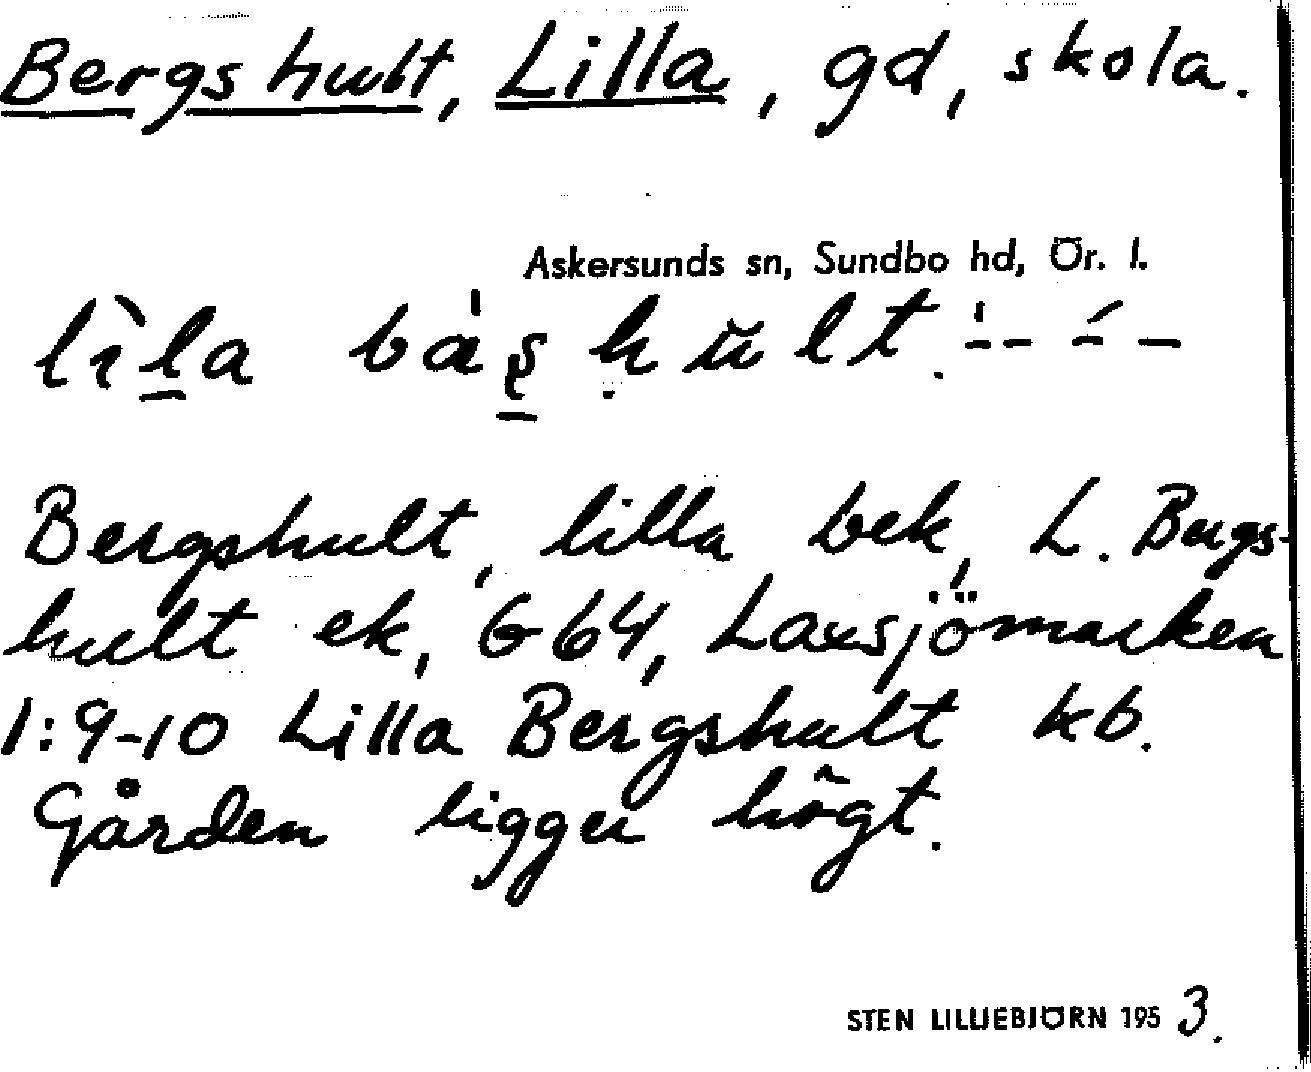 Bergshult, Lilla, gd, skola.
Askersunds sn, Sundbo hd, Ör. l.
Bergshult, lilla bek, L. Bergs-
hult ek, G 64, Laxsjömarken
1:9-10 Lilla Bergshult kb.
Gården ligger högt.
STEN LILLIEBJÖRN 1953.